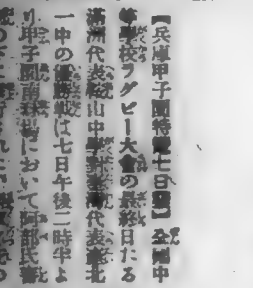 【兵庫甲子園特電七日發】全國中
等學校ラグビー大會の最終日たる
滿洲代表鞍山中學對臺灣代表臺北
一中の優勝戰は七日午後二時半よ
り甲子園南球場において阿部氏審